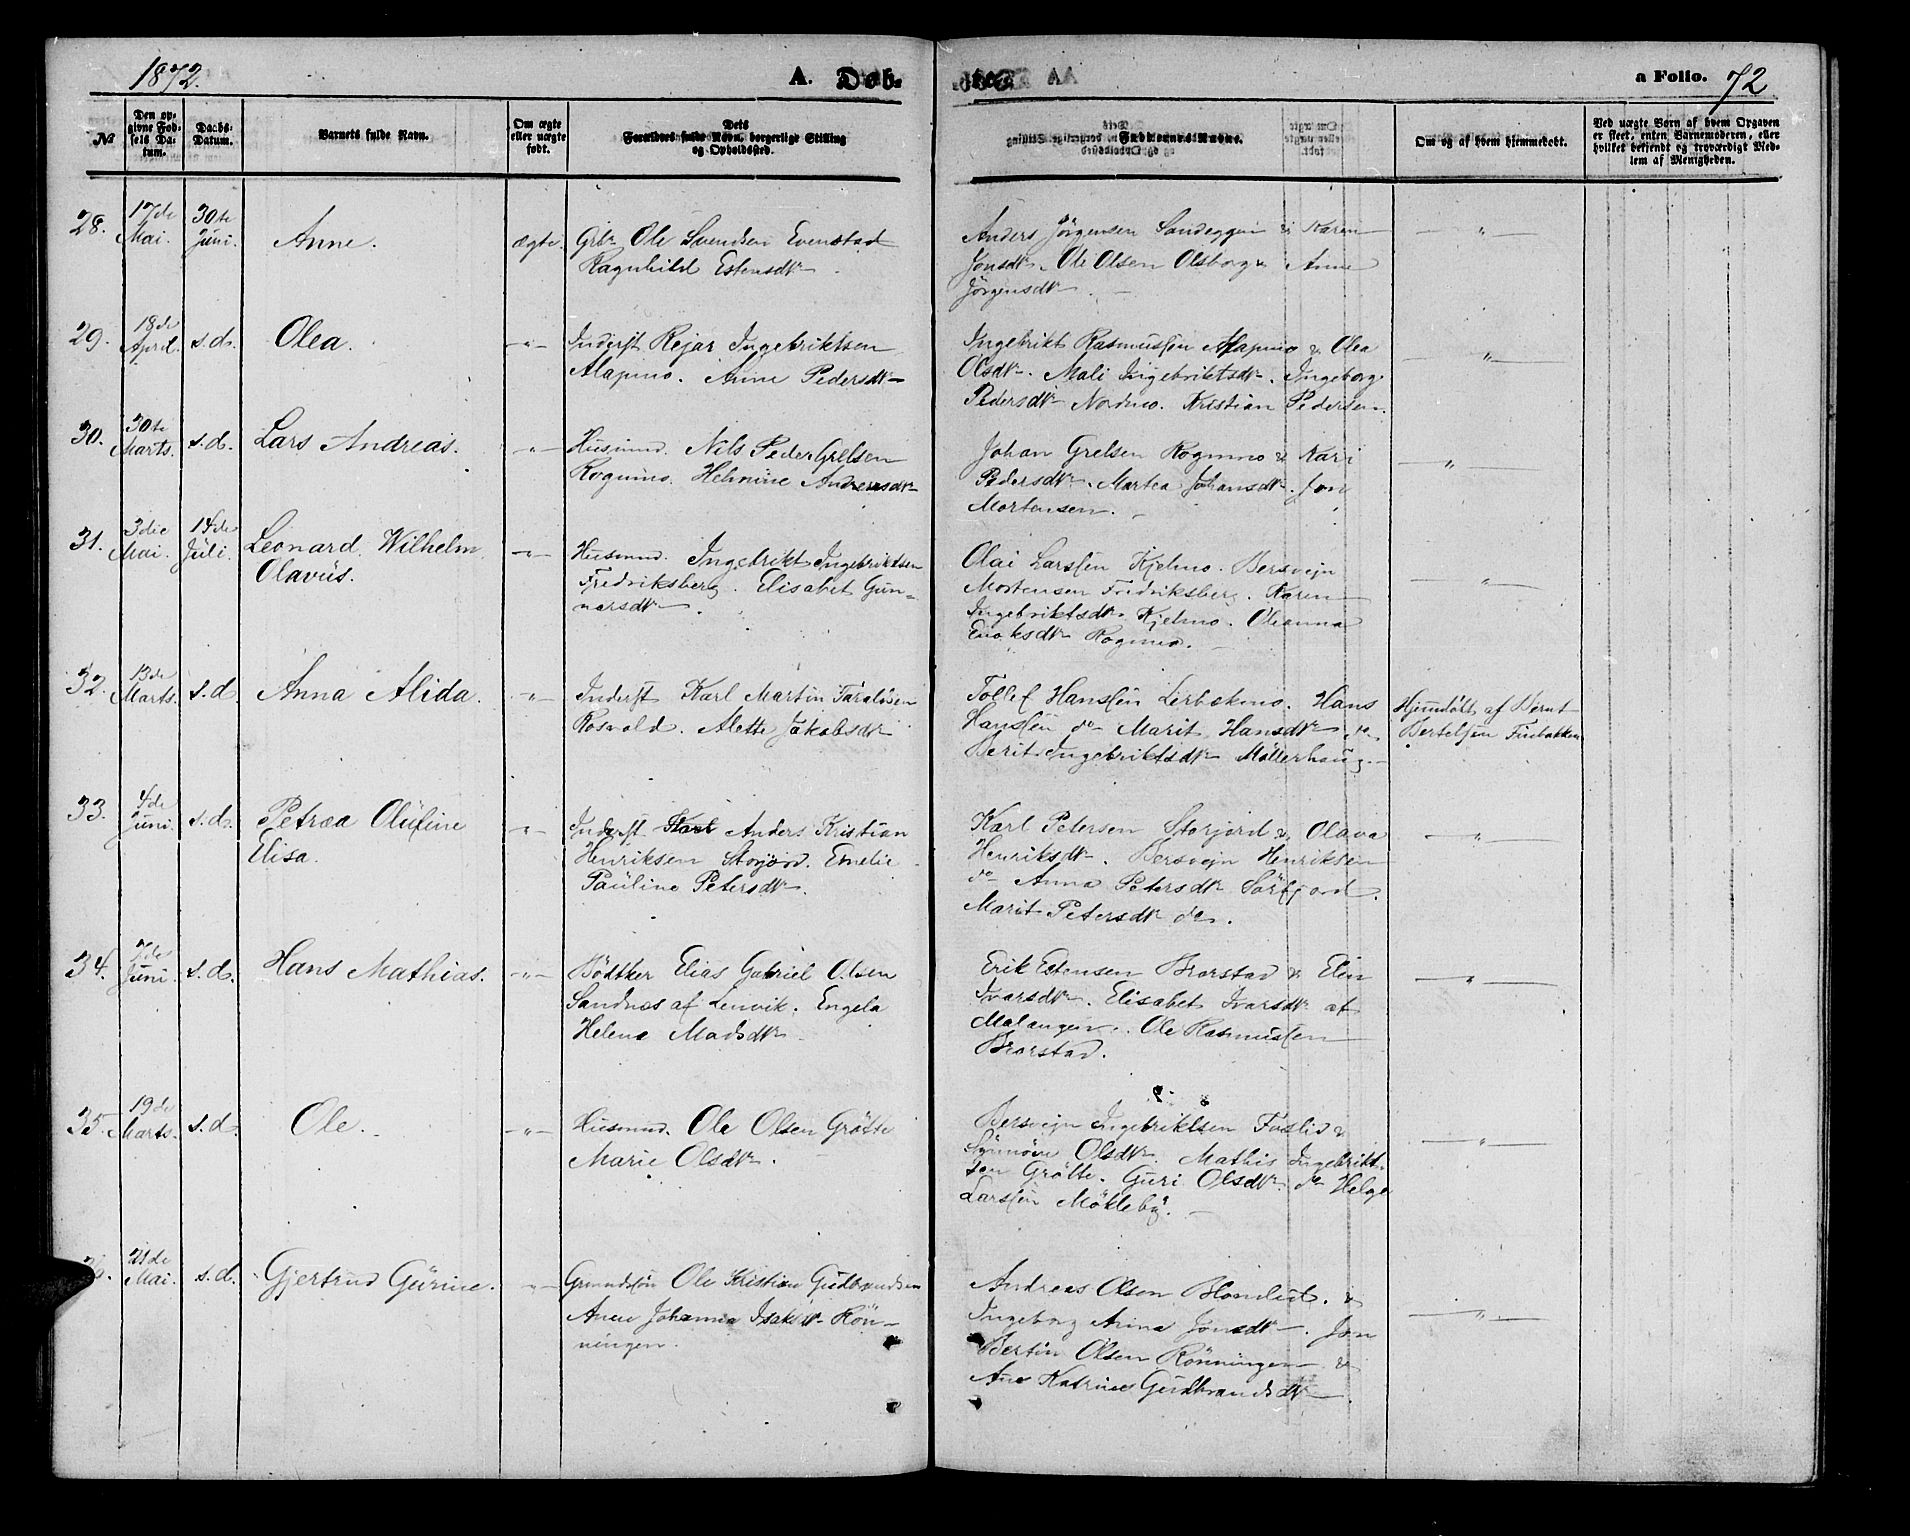 1872.
A. Døb-
te.
a Folio. 72
№
Den op-
givne Fød-
sels Da-
tum.
Daabs-
Datum.
Barnets fulde Navn.
Om ægte
eller uægte
født.
Dets
Forældres fulde Navn, borgerlige Stilling
og Opholdssted.
Faddernes Navne.
Om og af hvem hjemmedøbt.
Ved uægte Børn af hvem Opgaven
er skeet, enten Barnemoderen, eller
hvilket bekjendt og troværdigt Med-
lem af Menigheden.
28. 17de Mai. 30te Juni. Anne. ægte.
Grbr. Ole Svendsen Evenstad
Ragnhild Estensdtr.
Anders Jörgensen Sandeggen & Karen
Jonsdtr. Ole Olsen Olsborg & Anne
Jörgensdtr.
29. 18de April. s.d. Olea. -"-
Inderst Rejar Ingebriktsen
Alapmo. Anne Pedersdtr
Ingebrikt Rasmussen Alapmo & Olea
Olsdtr. Mali Ingebriktsdtr. Ingeborg
Pedersdtr Nordmo. Kristian Pedersen.
30. 30te Marts. s.d. Lars Andreas. -"-
Husmnd. Nils Peder Grelsen
Rognmo. Helmine Andreasdtr
Johan Grelsen Rognmo & Kari
Pedersdtr. Martea Johansdtr. Jon
Mortensen.
31. 3die Mai. 14de Juli. Leonard Wilhelm
Olavus. -"-
Husmnd. Ingebrikt Ingebriktsen
Fredriksberg. Elisabet Gun-
narsdtr.
Olai Larssen Kjelmo. Bersvejn
Mortensen Fredriksberg. Karen
Ingebriktsdtr. Kjelmo. Oleanna
Enoksdtr Rognmo.
32. 13de Marts. s.d. Anna Alida. -"-
Inderst Karl Martin Taraldsen
Rosvold. Alette Jakobsdtr
Tollef Hanssen Lerbækmo. Hans
Hanssen do Marit Hansdtr do
Berit Ingebriktsdtr Möllerhaug.
Hjemdöbt af Bernt
Bertelsen Finbakken
33. 4de Juni. s.d. Petrea Olufine
Elisa. -"-
Inderst Karl Anders Kristian
Henriksen Storjord. Emelie
Pauline Petersdtr.
Karl Petersen Storjord & Olava
Henriksdtr. Bersvejn Henriksen
do Anna Petersdtr Sörfjord.
Marit Petersdtr do.
34. 7de Juni. s.d. Hans Mathias. -"-
Bödtker Elias Gabriel Olsen
Sandnes af Lenvik. Engela
Helena Madsdtr
Erik Estensen Brorstad & Elen
Ivarsdtr. Elisabet Ivarsdtr af
Malangen. Ole Rasmussen
Brorstad.
35. 19de Marts. s.d. Ole. -"-
Husmnd. Ole Olsen Grötte
Marie Olsdtr.
Bersvejn Ingebriktsen Fosli &
Synnöve Olsdtr. Mathis Ingebrikt-
sen Grötte. Guri Olsdtr. do Helge
Larssen Mökleby.
36. 21de Mai. s.d. Gjertrud Gurine. -"-
Grundssön Ole Kristian Gudbrandsen
Anne Johanna Isaksdtr Rön-
ningen.
Andreas Olsen Blomlid. &
Ingeborg Anna Jonsdtr. Jon
Bertin Olsen Rönningen &
Ane Katrine Gudbrandsdtr.